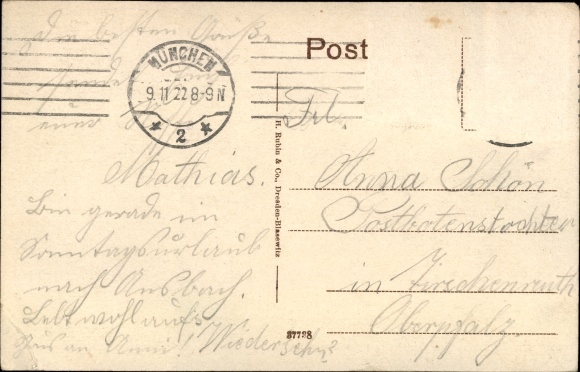 Die besten Grüße
sendet
euer
Mathias.
Bin gerade im
Sonntagsurlaub
nach Ansbach.
Lebt wohl aufs
Wiedersehn
Gus an Anni!
Post
MÜNCHEN
9.11.22 8-9N
* 2 *
H. Rubin & Co., Dresden-Blasewitz
37738
Frl.
Anna Schön
Postbotenstochter
in Tirschenreuth
Oberpfalz